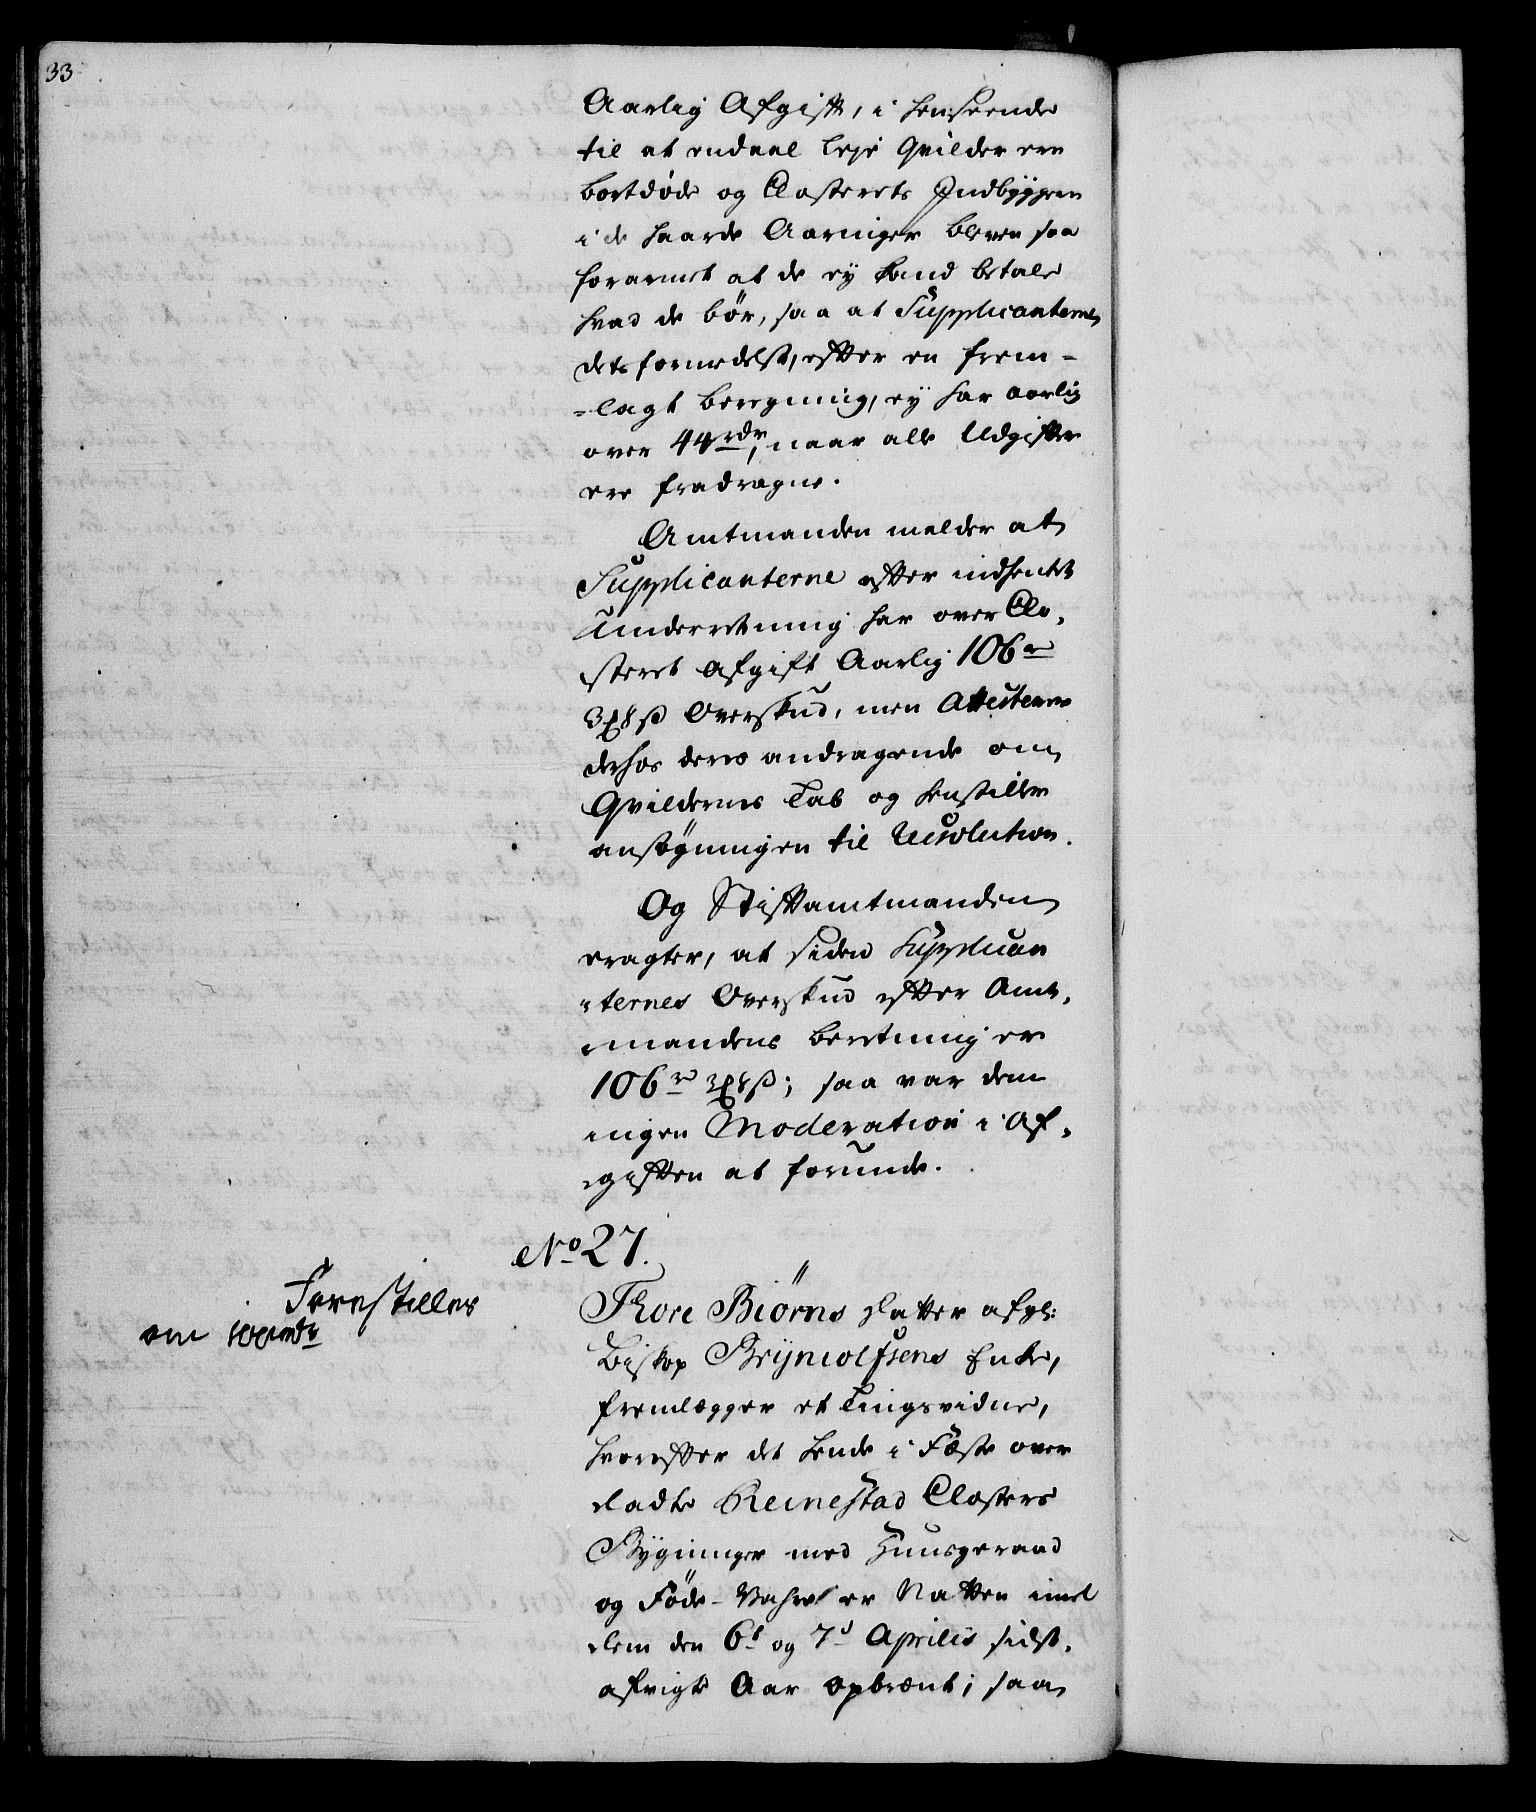 33
Aarlig Afgift, i henseende
til at endeel Leje Qvilder ere
bortdöde og Closterets Indbyggere
i de haarde Aaringer bleven saa
forarmet at de ey kand betale
hvad de bör, saa at Supplicanterne
detsformedelst, efter en frem-
-lagt beregning, ey har aarlig
over 44 rdr, naar alle Udgifter
ere fradragne.
Amtmanden melder at
Supplicanterne efter indhentet
Underretning har over Clo-
steret Afgift Aarlig 106 r
3 ß Overskud, men Attesterer
derhos deres andragende om
Qvildernes Tab og henstiller
ansögningen til Resolution.
Og Stiftamtmanden
eragter, at siden Supplican
-ternes Overskud efter Amt-
-mandens beretning er
106 r ß; saa var dem
ingen Moderation i Af-
-giften at forunde.
No 27.
Forestilles
om
Thore Biörns Datter afgl:
Biskop Brynjolfsens Enke,
fremlægger et Tingsvidne,
hvorefter det hende i Fæste over
-ladte Reinestad Closters
Bygninger med Huusgeraad
og Föde-Vahre er Natten imel
-lem den 6t og 7d Aprilis sidst-
afvigte Aar opbrent; saa